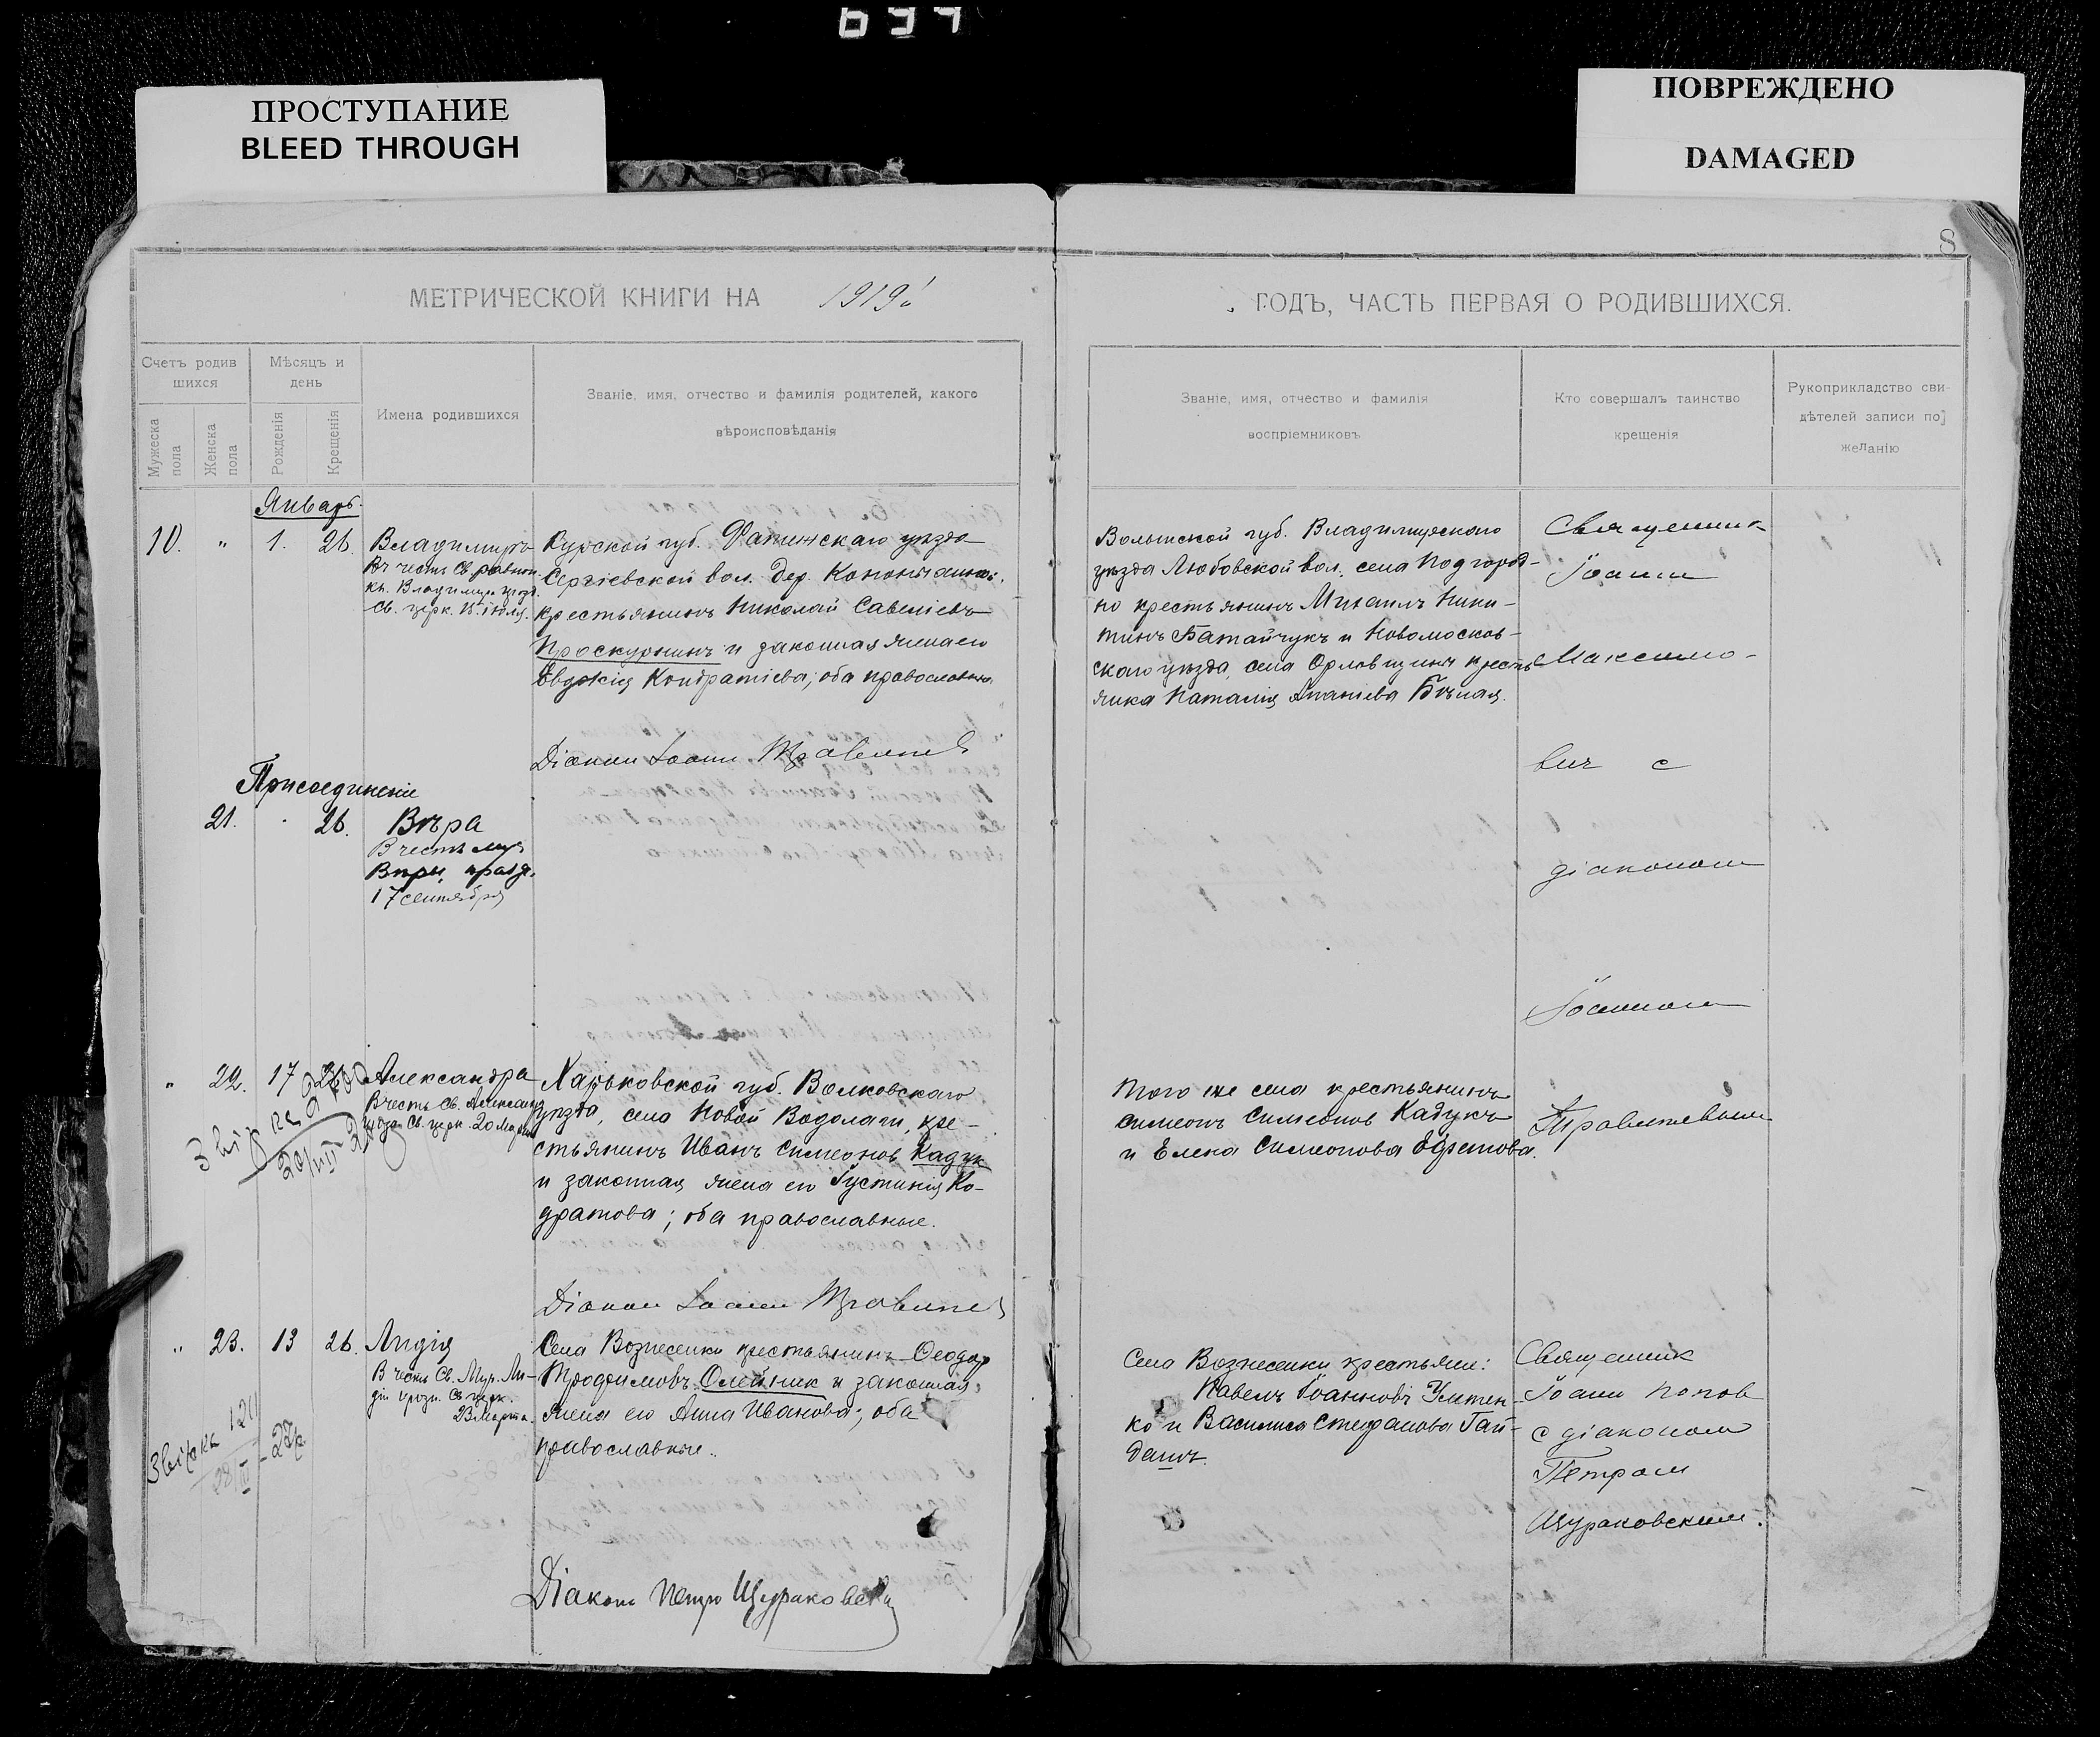 ПРОСТУПАНИЕ
BLEED THROUGH
ПОВРЕЖДЕНО
DAMAGED
8
МЕТРИЧЕСКОЙ КНИГИ НА 1919
ГОДЪ, ЧАСТЬ ПЕРВАЯ О РОДИВШИХСЯ.
Счетъ родив
шихся
Мужеска
пола
Женска
пола
Мѣсяцъ и
день
Рожденія
Крещенія
Имена родившихся
Званіе, имя, отчество и фамилія родителей, какого
вѣроисповѣданія
Званіе, имя, отчество и фамилія
воспріемниковъ
Кто совершалъ таинство
крещенія
Рукоприкладство сви-
дѣтелей записи по
желанію
Январь.
10. " 1. 26.
Владимиръ
Въ честь Св. равноп.
кн. Владимира празд.
св. церк. 15 іюля.
Курской губ. Фатежскаго уѣзда
Сергіевской вол. дер.
крестьянинъ Николай Савеліевъ
Проскурнинъ и законная жена его
Евдокія Кондратіева; оба православн.
Діакон Іоанн
Волынской губ. Владимирскаго
уѣзда Любовской вол. села Подгород-
но крестьянинъ Михаилъ Ники-
тинъ Батайчукъ и Новомосков-
скаго уѣзда, села Орловщины кресть-
янка Наталія Ананіева Бѣлая.
Священник
Іоанн
Максимо-
вич с
діаконом
Іоанном
Травлевым
Присоединеніе
21. 26.
Вѣра
В честь муч.
Вѣры, празд.
17 сентября
" 22. 17 26
Александра
В честь Св. Александ
празд. св. церк. 20 Марта
Харьковской губ. Волковскаго
уѣзда, села Новой Водолаги, кре-
стьянинъ Иванъ Симеонов Кадук
и законная жена его Іустинія Ко-
дратова; оба православные.
Діакон Іоанн
Того же села крестьянинъ
Симеонъ Симеонов Кадукъ
и Елена Симеонова Ефремова.
" 23. 13 26.
Лидія
В честь Св. Муч. Ли-
діи празд. Св. церк.
23 Марта.
Села Вознесенки крестьянинъ Ѳеодор
Трофимовъ Олейник и законная
жена его Анна Иванова; оба
православные.
Діаконъ Петръ Щураковскій
Села Вознесенки крестьяне:
Павелъ Іоанновъ
ко и Василиса Стефанова Гай-
данъ.
Священник
Іоанн Попов
с діаконом
Петром
Щураковским.